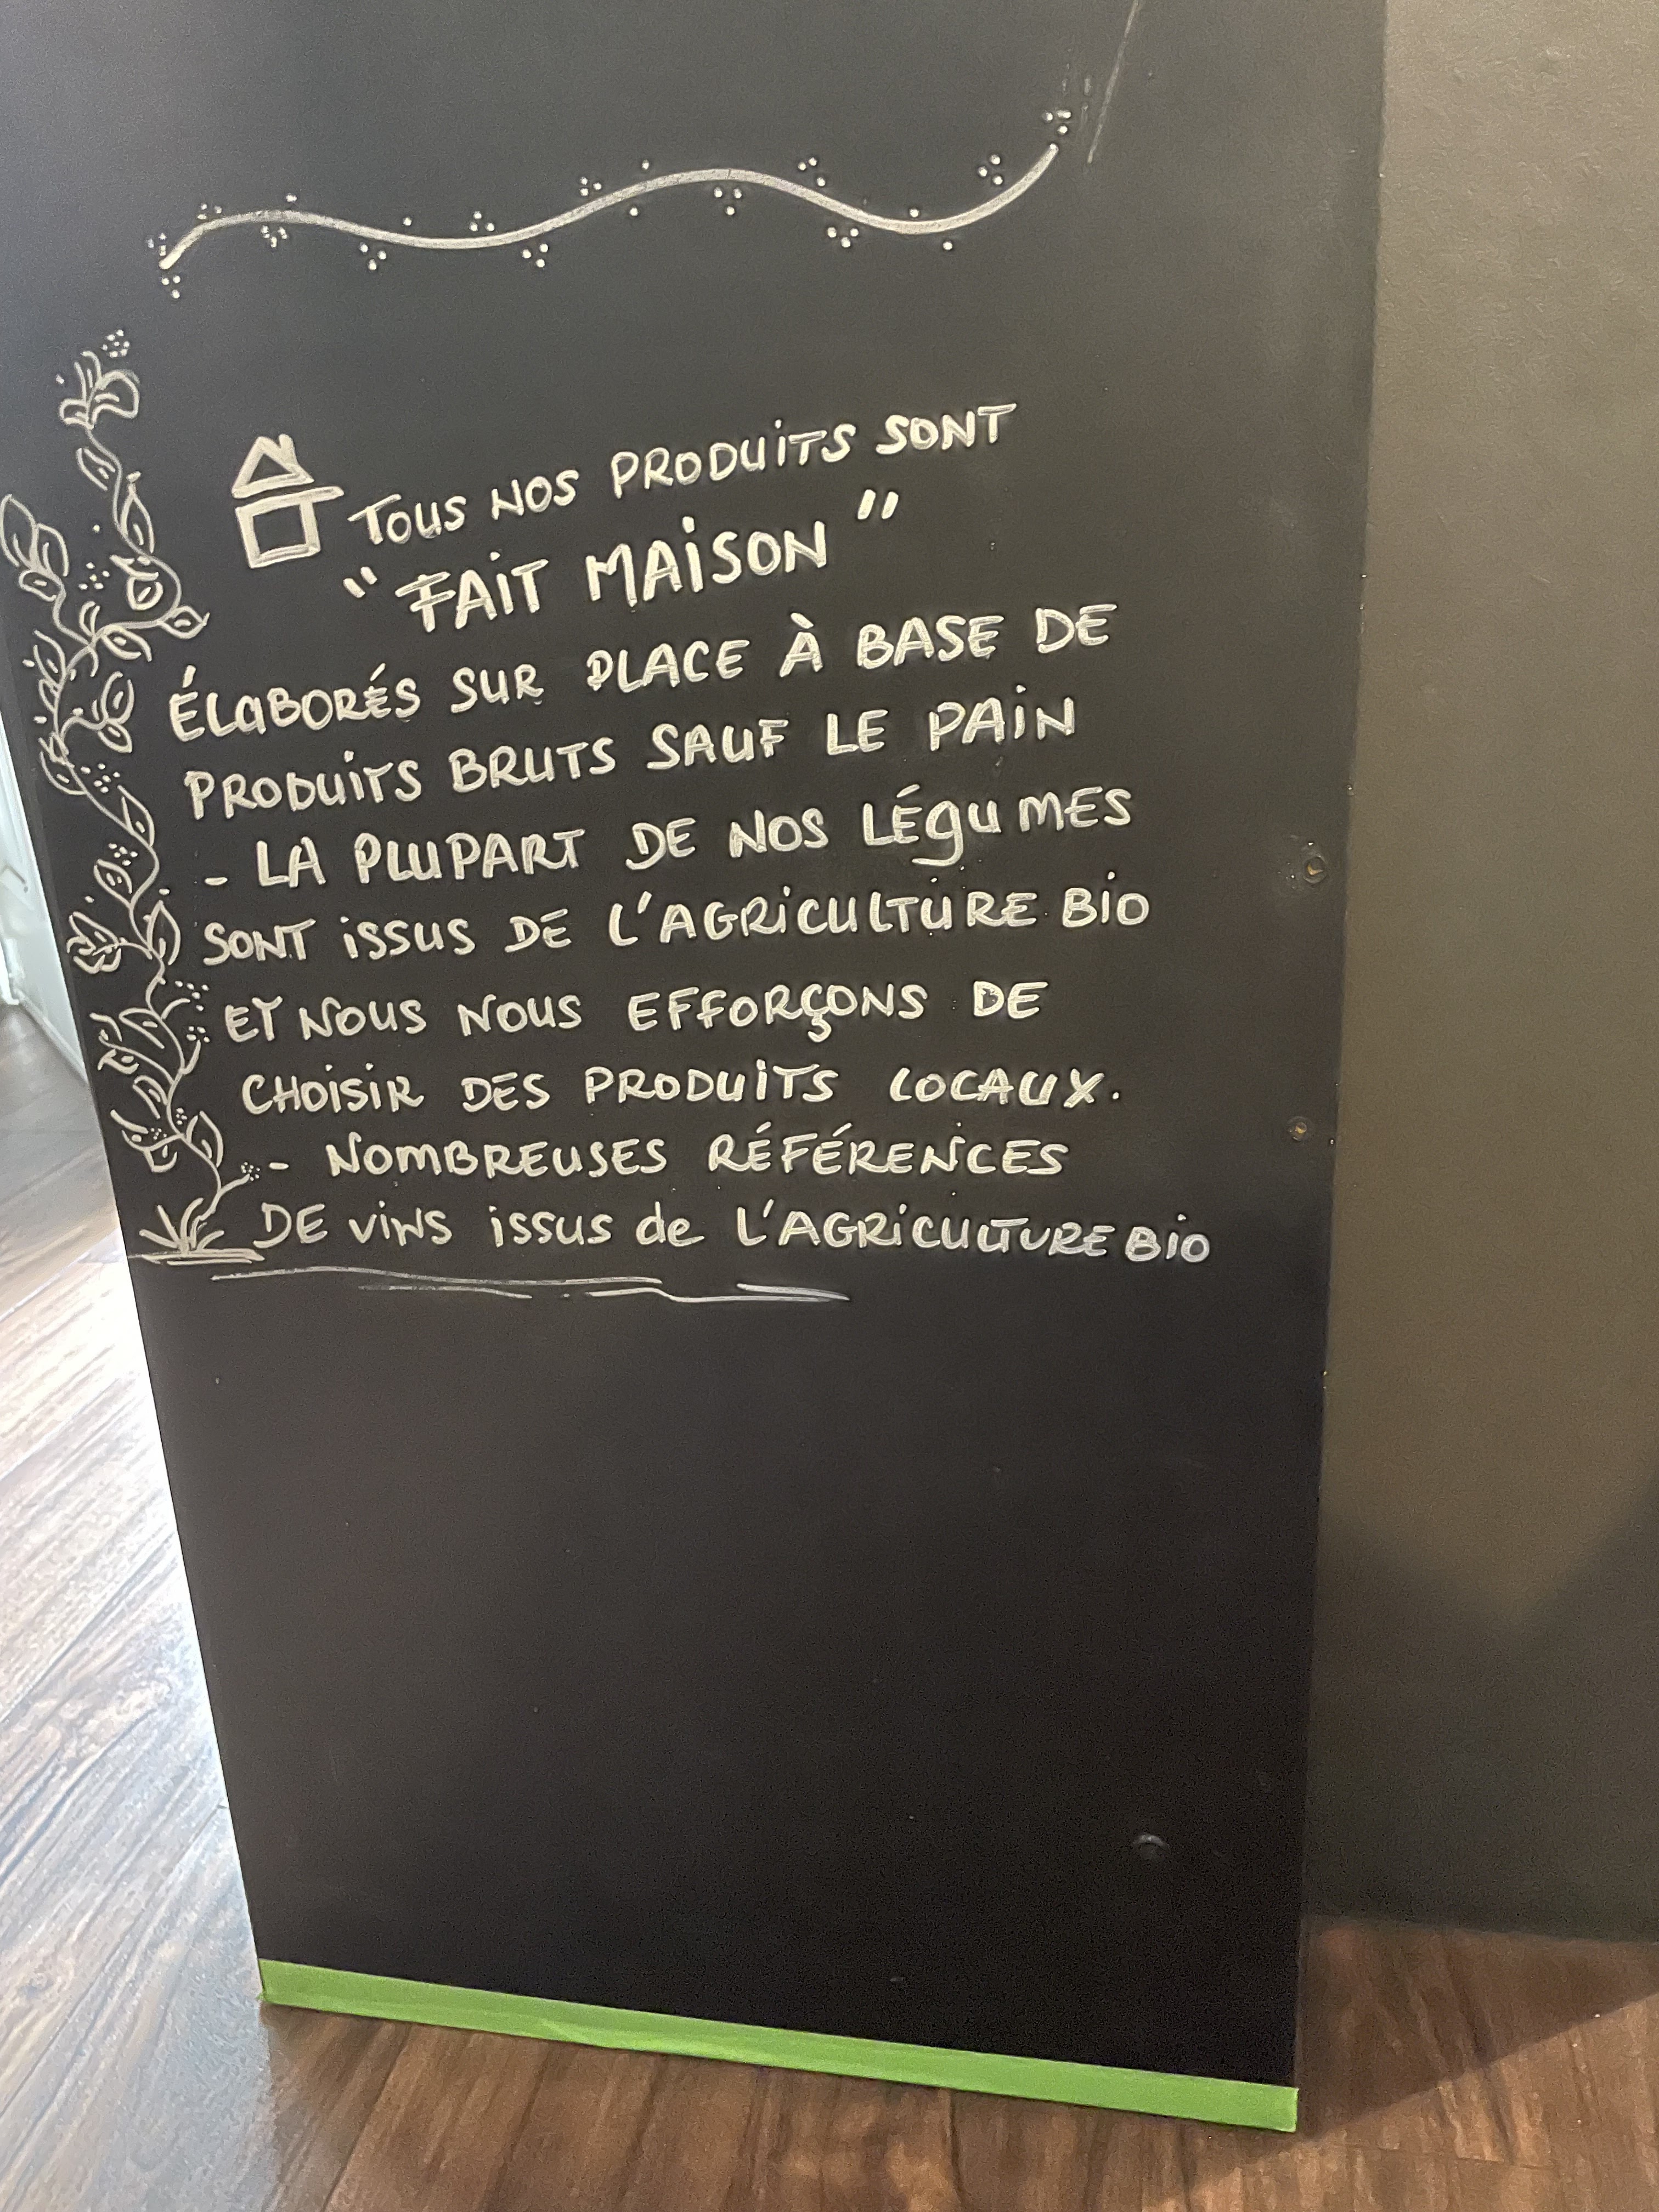 TOUS NOS PRODUITS SONT
"FAIT MAISON"
ÉLABORÉS SUR PLACE À BASE DE
PRODUITS BRUTS SAUF LE PAIN
- LA PLUPART DE NOS LÉGUMES
SONT ISSUS DE L'AGRICULTURE BIO
ET NOUS NOUS EFFORÇONS DE
CHOISIR DES PRODUITS LOCAUX.
- NOMBREUSES RÉFÉRENCES
DE VINS ISSUS de L'AGRICULTURE BIO